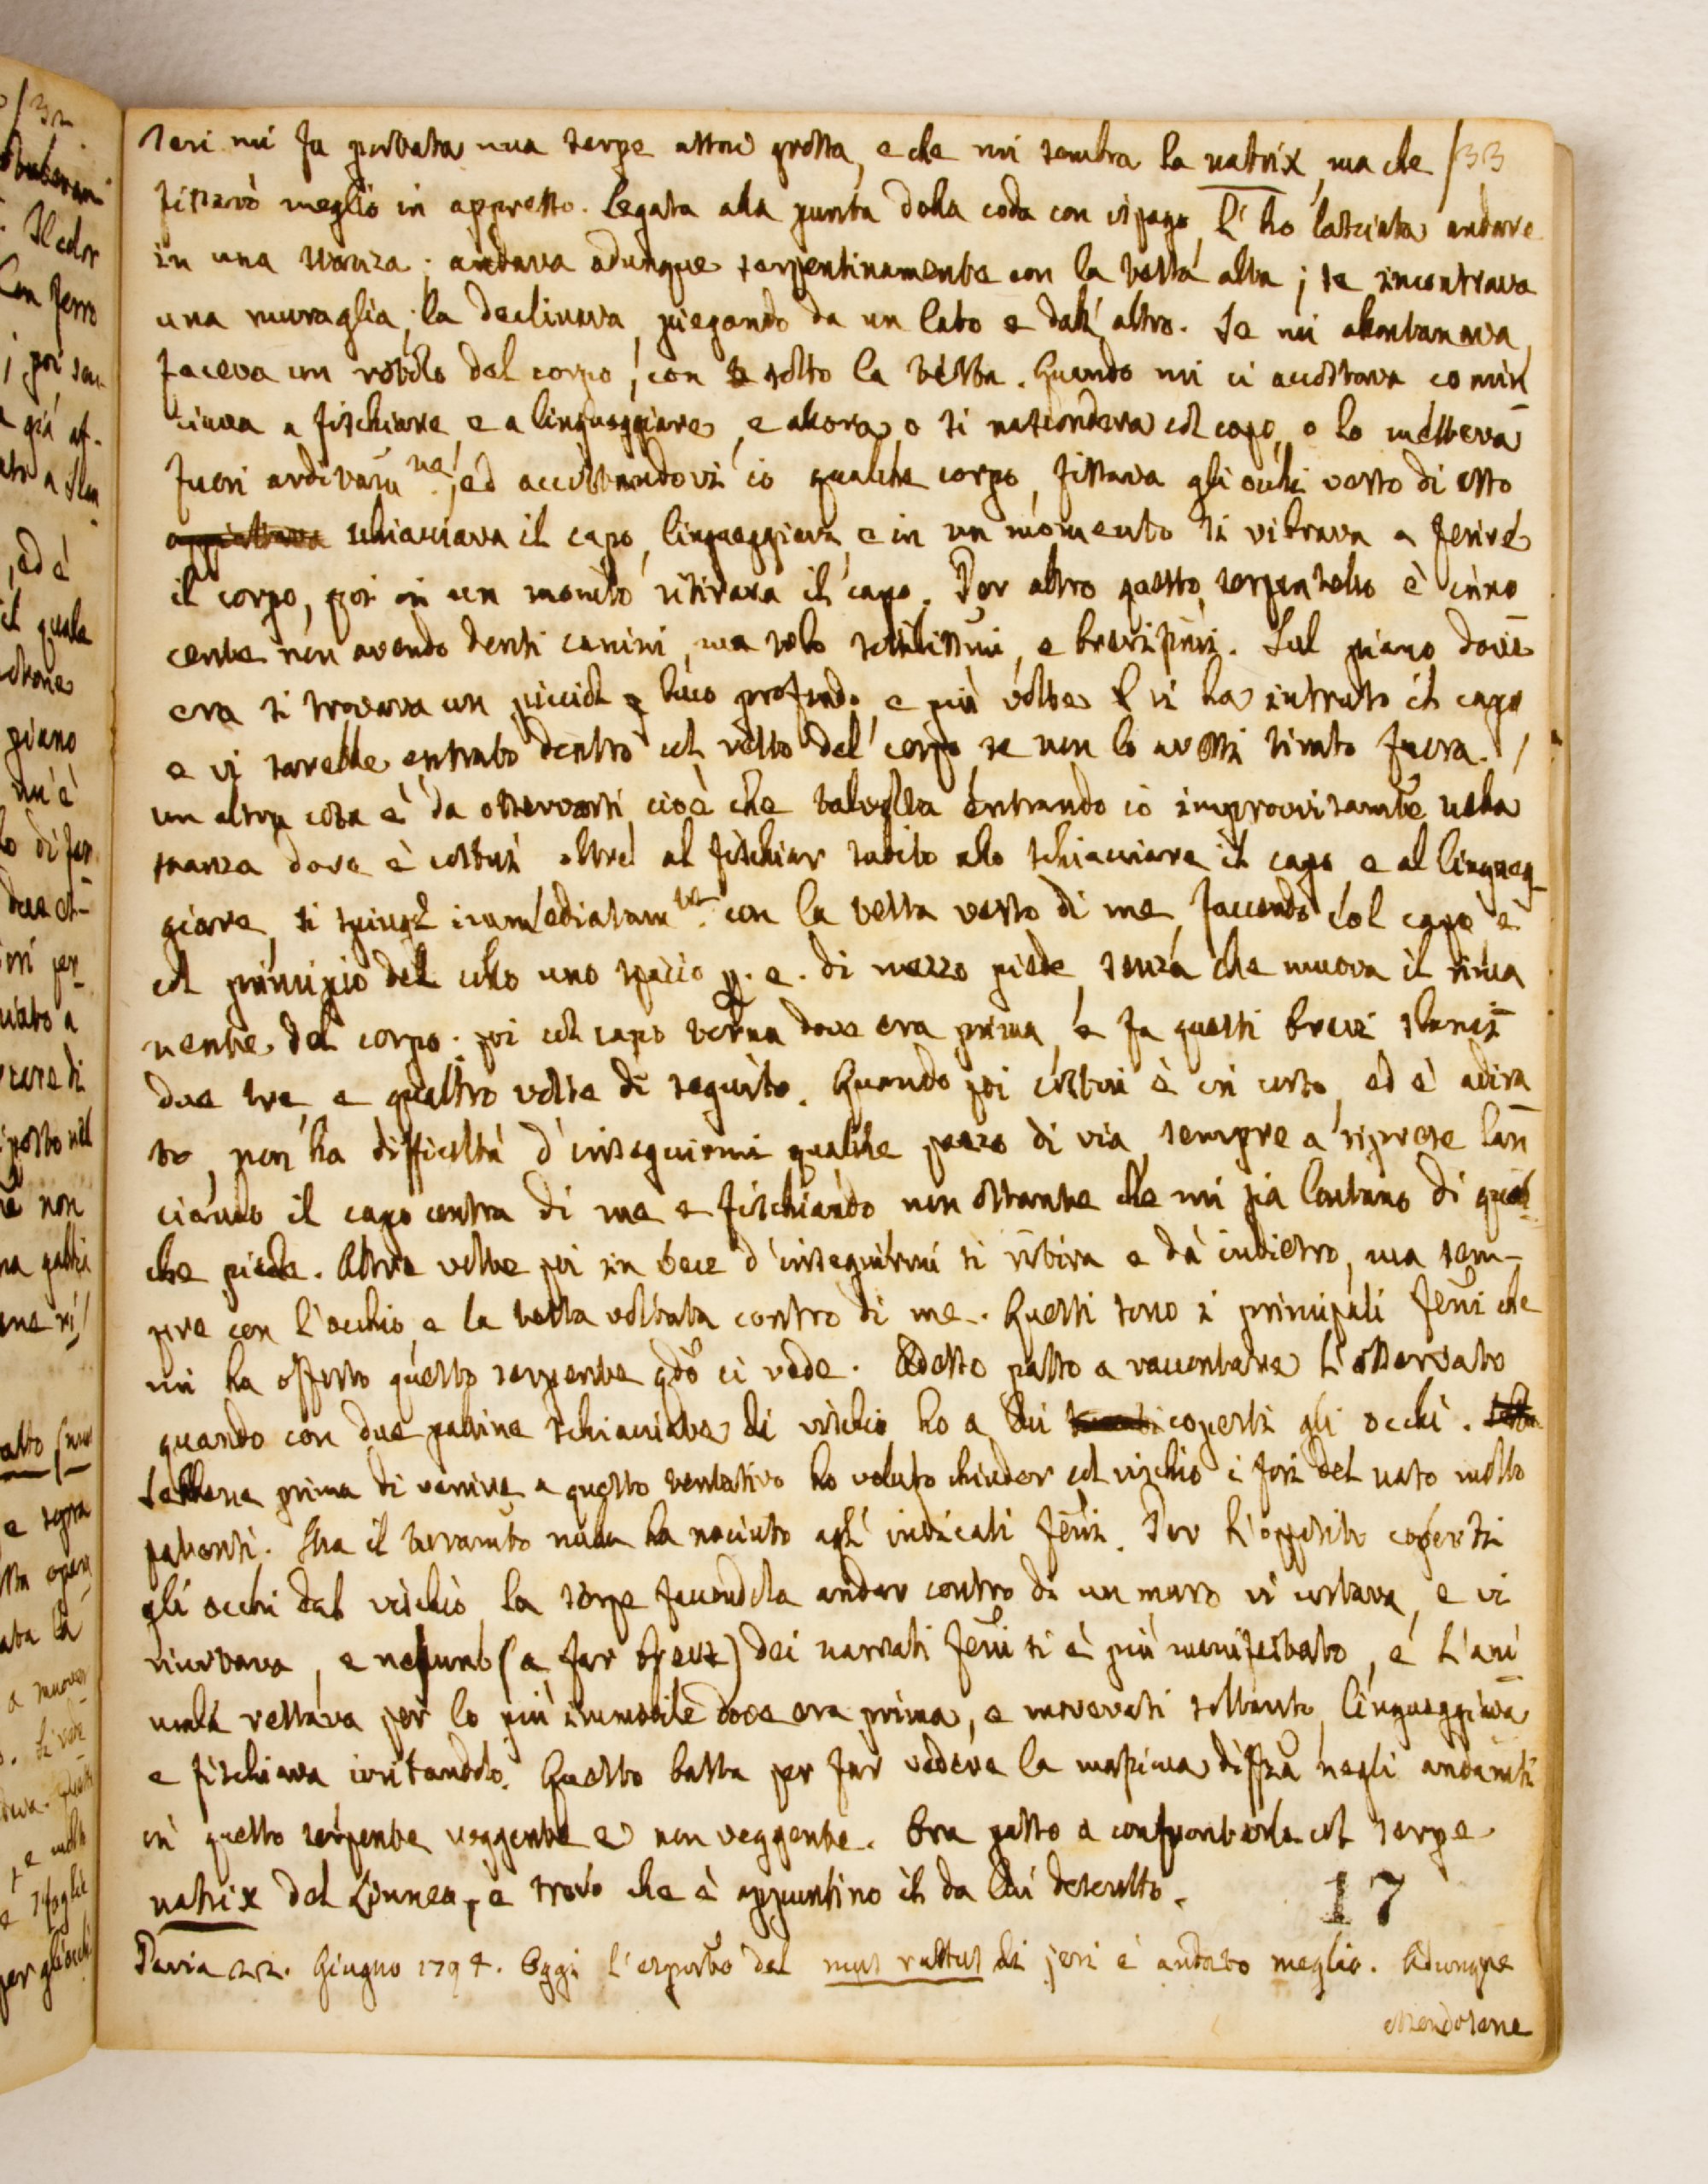 Ieri mi fu portata una serpe assai grossa, e che mi sembra la natrix, ma che /33
fisserò meglio in appresso. Legata alla punta della coda con ispago, l'ho lasciata andare
in una stanza; andava adunque serpentinamente con la testa alta; se incontrava
una muraglia, la declinava, piegando da un lato e dall'altro. Se mi allontanava,
faceva un rotolo del corpo, con sotto la testa. Quando mi ci accostava comin
ciava a fischiare, e a lingueggiare, e allora, o si nascondeva col capo, o lo metteva
fuori; ed accostandovi io qualche corpo, fissava gli occhi verso di esso
schiacciava il capo, lingueggiava, e in un momento si vibrava a ferire
il corpo, poi in un momto ritirava il capo. Per altro questo serpentello è inno
cente non avendo denti canini, ma solo sottilissimi, e brevissimi. Sul piano dove
era si trovava un piccol buco profondo, e più volte vi ha intruso il capo
e vi sarebbe entrato dentro col resto del corpo se non lo avessi tirato fuora. /
un altra cosa è da osservarsi cioè che talvolta entrando io improvvisamte nella
stanza dove è costui oltre al fischiar subito allo schiacciare il capo e al lingueg-
giare, si spinge immediatamte con la testa verso di me, facendo col capo e
col principio del collo uno spacio p. e. di mezzo piede, senza che muova il rima
nente del corpo. poi col capo torna dove era prima, e fa questi brevi slanci
due tre, e quattro volte di seguito. Quando poi costui è in corso, ed è adira
to, non ha difficoltà d'inseguirmi qualche pezzo di via, sempre a riprese lan
ciando il capo contra di me e fischiando non ostante che mi sia lontano di qual-
che piede. Altre volte poi in vece d'inseguirmi si ritira e dà indietro, ma sem-
pre con l'occhio, e la testa voltata contro di me. Questi sono i principali feni che
mi ha offerto questo serpente qdo ci vede. Adesso passo a raccontare l'osservato
quando con due patine schiacciate di vischio ho a lui coperti gli occhi.
Sebbene prima di venire a questo tentativo ho voluto chiuder col vischio i fori del naso molto
patenti. Ma il turamto nulla ha nociuto agl'indicati feni. Per l'opposito coperti
gli occhi dal vischio la serpe facendola andar contro di un muro vi urtava, e vi
riurtava, e nessuno (a far brevi) dei narrati feni si è più manifestato, e l'ani
male restava per lo più immobile dove era prima, e movevasi soltanto, lingueggiava
e fischiava irritandolo. Questo basta per far vedere la massima diffza negli andamti
in questo serpente veggente e non veggente. Ora passo a confrontarla col serpe
natrix del Linneo, e trovo che è appuntino il da lui descritto.
17
Pavia 22. Giugno 1794. Oggi l'esposto del mus rattus di jeri è andato meglio. Adunque